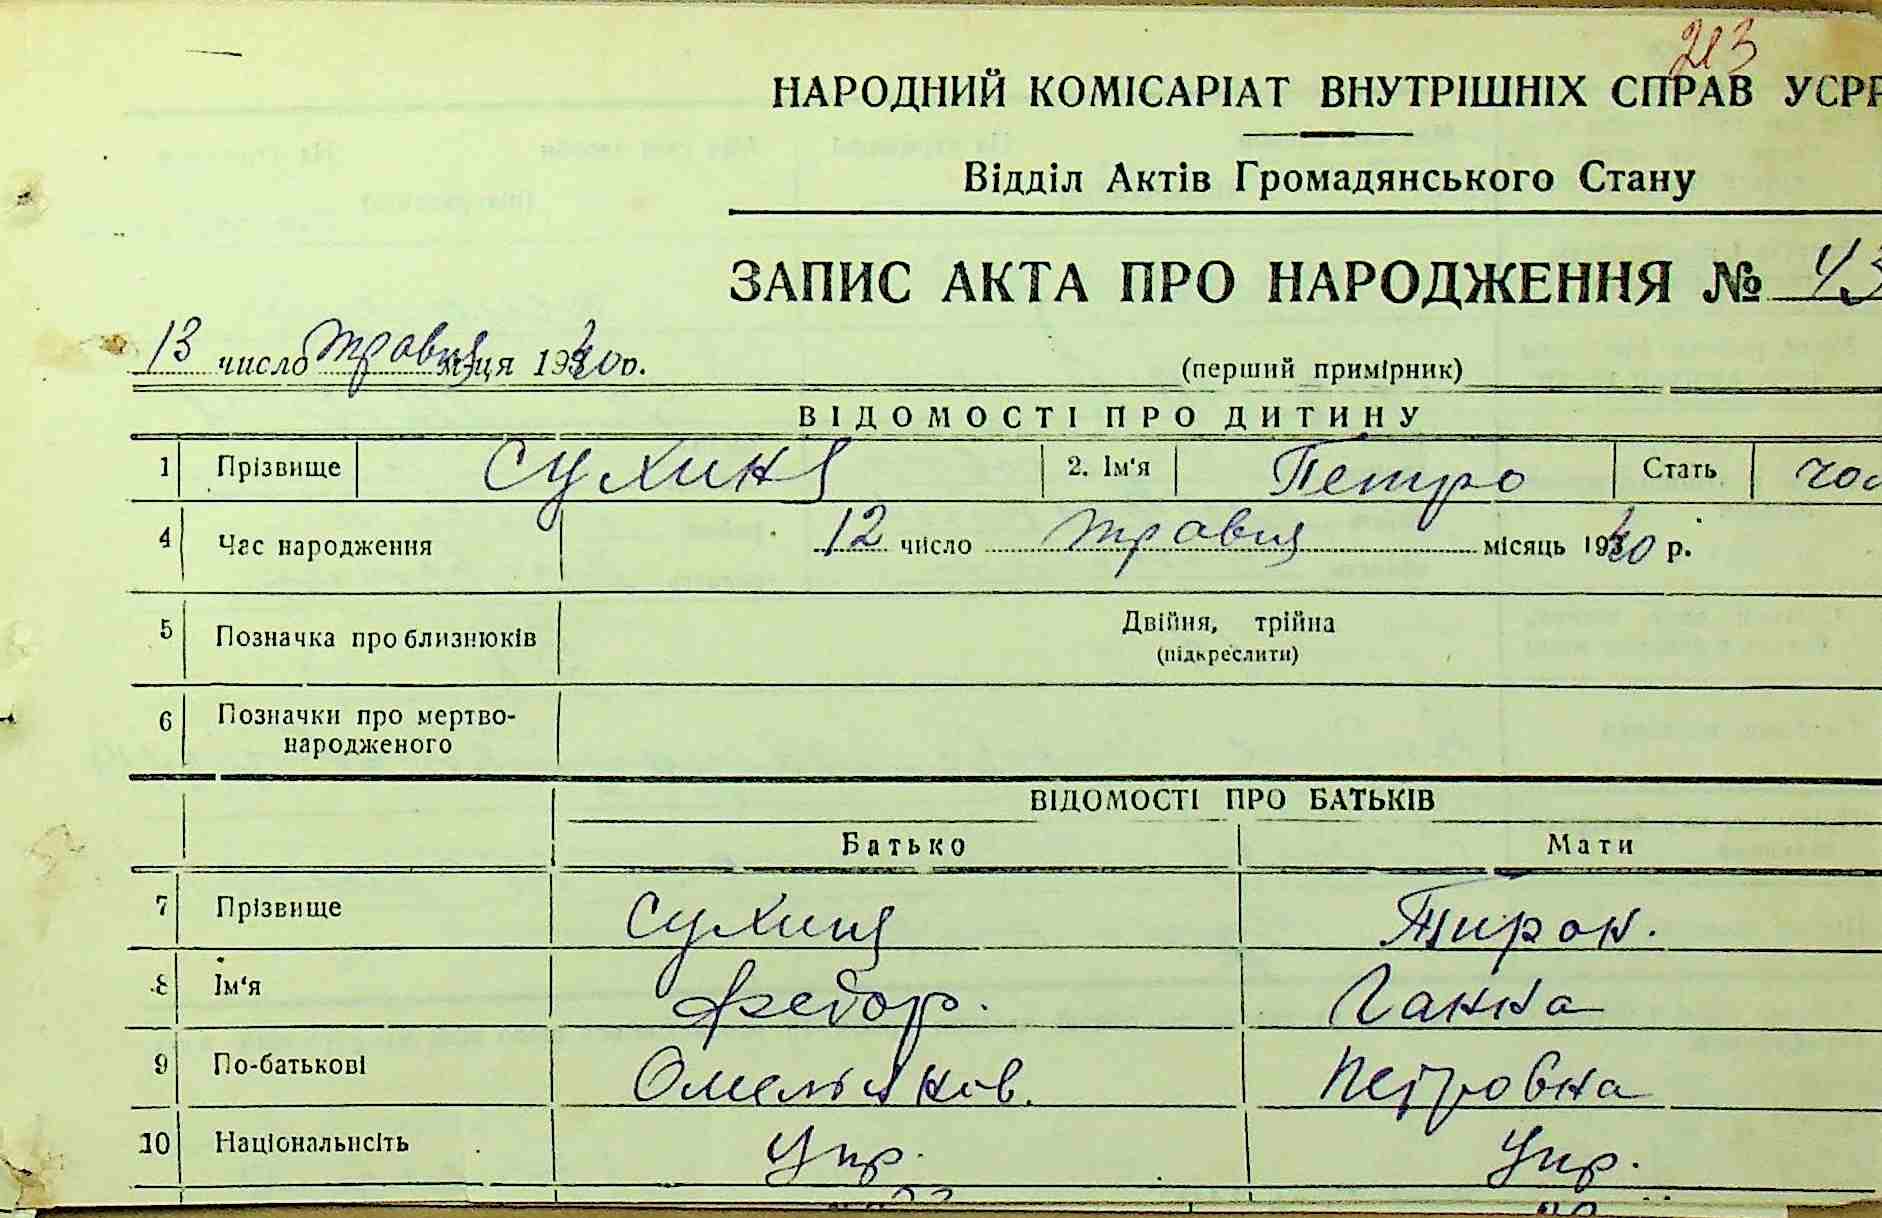 213
НАРОДНИЙ КОМІСАРІАТ ВНУТРІШНІХ СПРАВ УСРР
Відділ Актів Громадянського Стану
ЗАПИС АКТА ПРО НАРОДЖЕННЯ № 43
13 число травня м-ця 1940 р.
(перший примірник)
ВІДОМОСТІ ПРО ДИТИНУ
1 Прізвище Сухиня 2. Ім'я Петро Стать чол
4 Час народження 12 число травня місяць 1940 р.
5 Позначка про близнюків Двійня, трійна
(підкреслити)
6 Позначки про мертво-
народженого
ВІДОМОСТІ ПРО БАТЬКІВ
Батько Мати
7 Прізвище Сухиня Тирон.
8 Ім'я Федор. Ганна
9 По-батькові Омельянов. Петровна
10 Національність Укр. Укр.